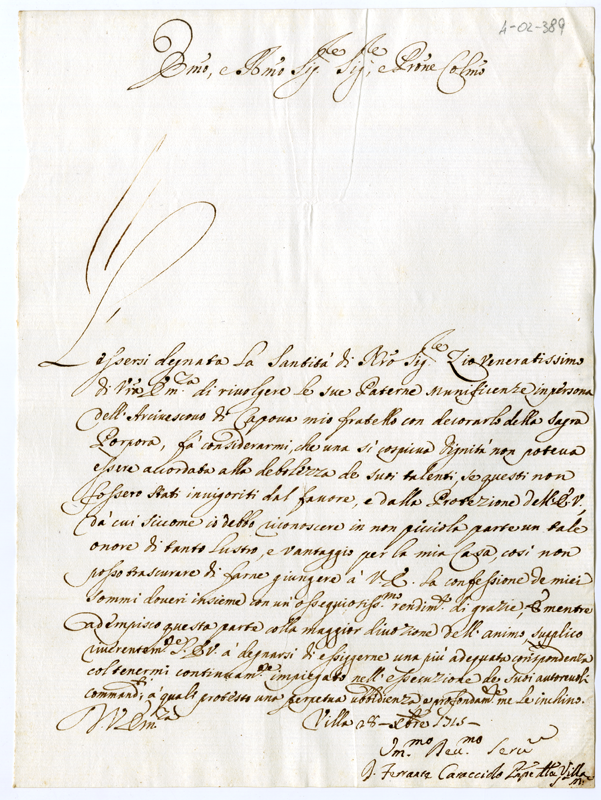 4-02-389
Emo, e Rmo Sig.re Sig.re, e Prone Colmo
L'essersi degnata la Santità di Nro Sig.re Zio Veneratissimo
di Vra Em.za di rivolgere le sue Paterne Munificenze in persona
dell'Arcivescovo di Capova mio fratello con decorarlo della Sagra
Porpora, fà considerarmi, che una sì cospicua dignità non poteva
essere accordata alla debolezza de suoi talenti, se questi non
fossero stati invigoriti dal favore, e dalla Protezione dell'E.V.,
dà cui siccome io debbo riconoscere in non picciola parte un tale
onore di tanto lustro, e vantaggio per la mia Casa, così non
posso trascurare di farne giungere à V.E. la confessione de miei
sommi doveri insieme con un'ossequiosiss.mo rendim.to di grazie, e mentre
adempisco questa parte colla maggior divozione dell'animo, supplico
riverentem.te l'E.V. à degnarsi di essiggerne una più adequata corrispondenza
col tenermi continuam.te impiegato nell'essecuzione de suoi autorevoli
comandi, à quali protesto una perpetua ubbidienza e profondam.te me le inchino.
Di V. Em.za Villa 28 Xbre 1715
Um.mo Dev.mo Serv.e
D. Ferrante Caracciolo Villa